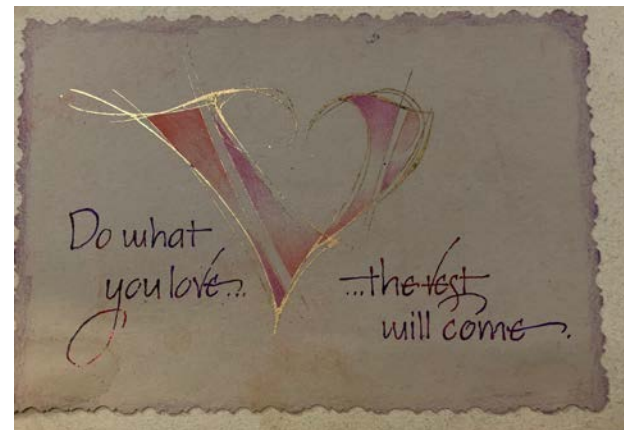 Do what
you love...
...the rest
will come.